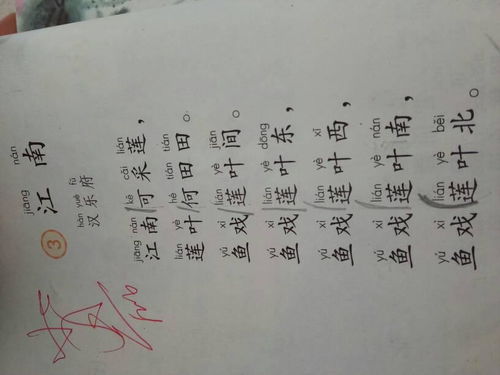 jiāng nán
③ 江南
hàn yuè fǔ
汉乐府
jiāng nán kě cǎi lián
江南可采莲，
lián yè hé tián tián
莲叶何田田。
yú xì lián yè jiān
鱼戏莲叶间。
yú xì lián yè dōng
鱼戏莲叶东，
yú xì lián yè xī
鱼戏莲叶西，
yú xì lián yè nán
鱼戏莲叶南，
yú xì lián yè běi
鱼戏莲叶北。